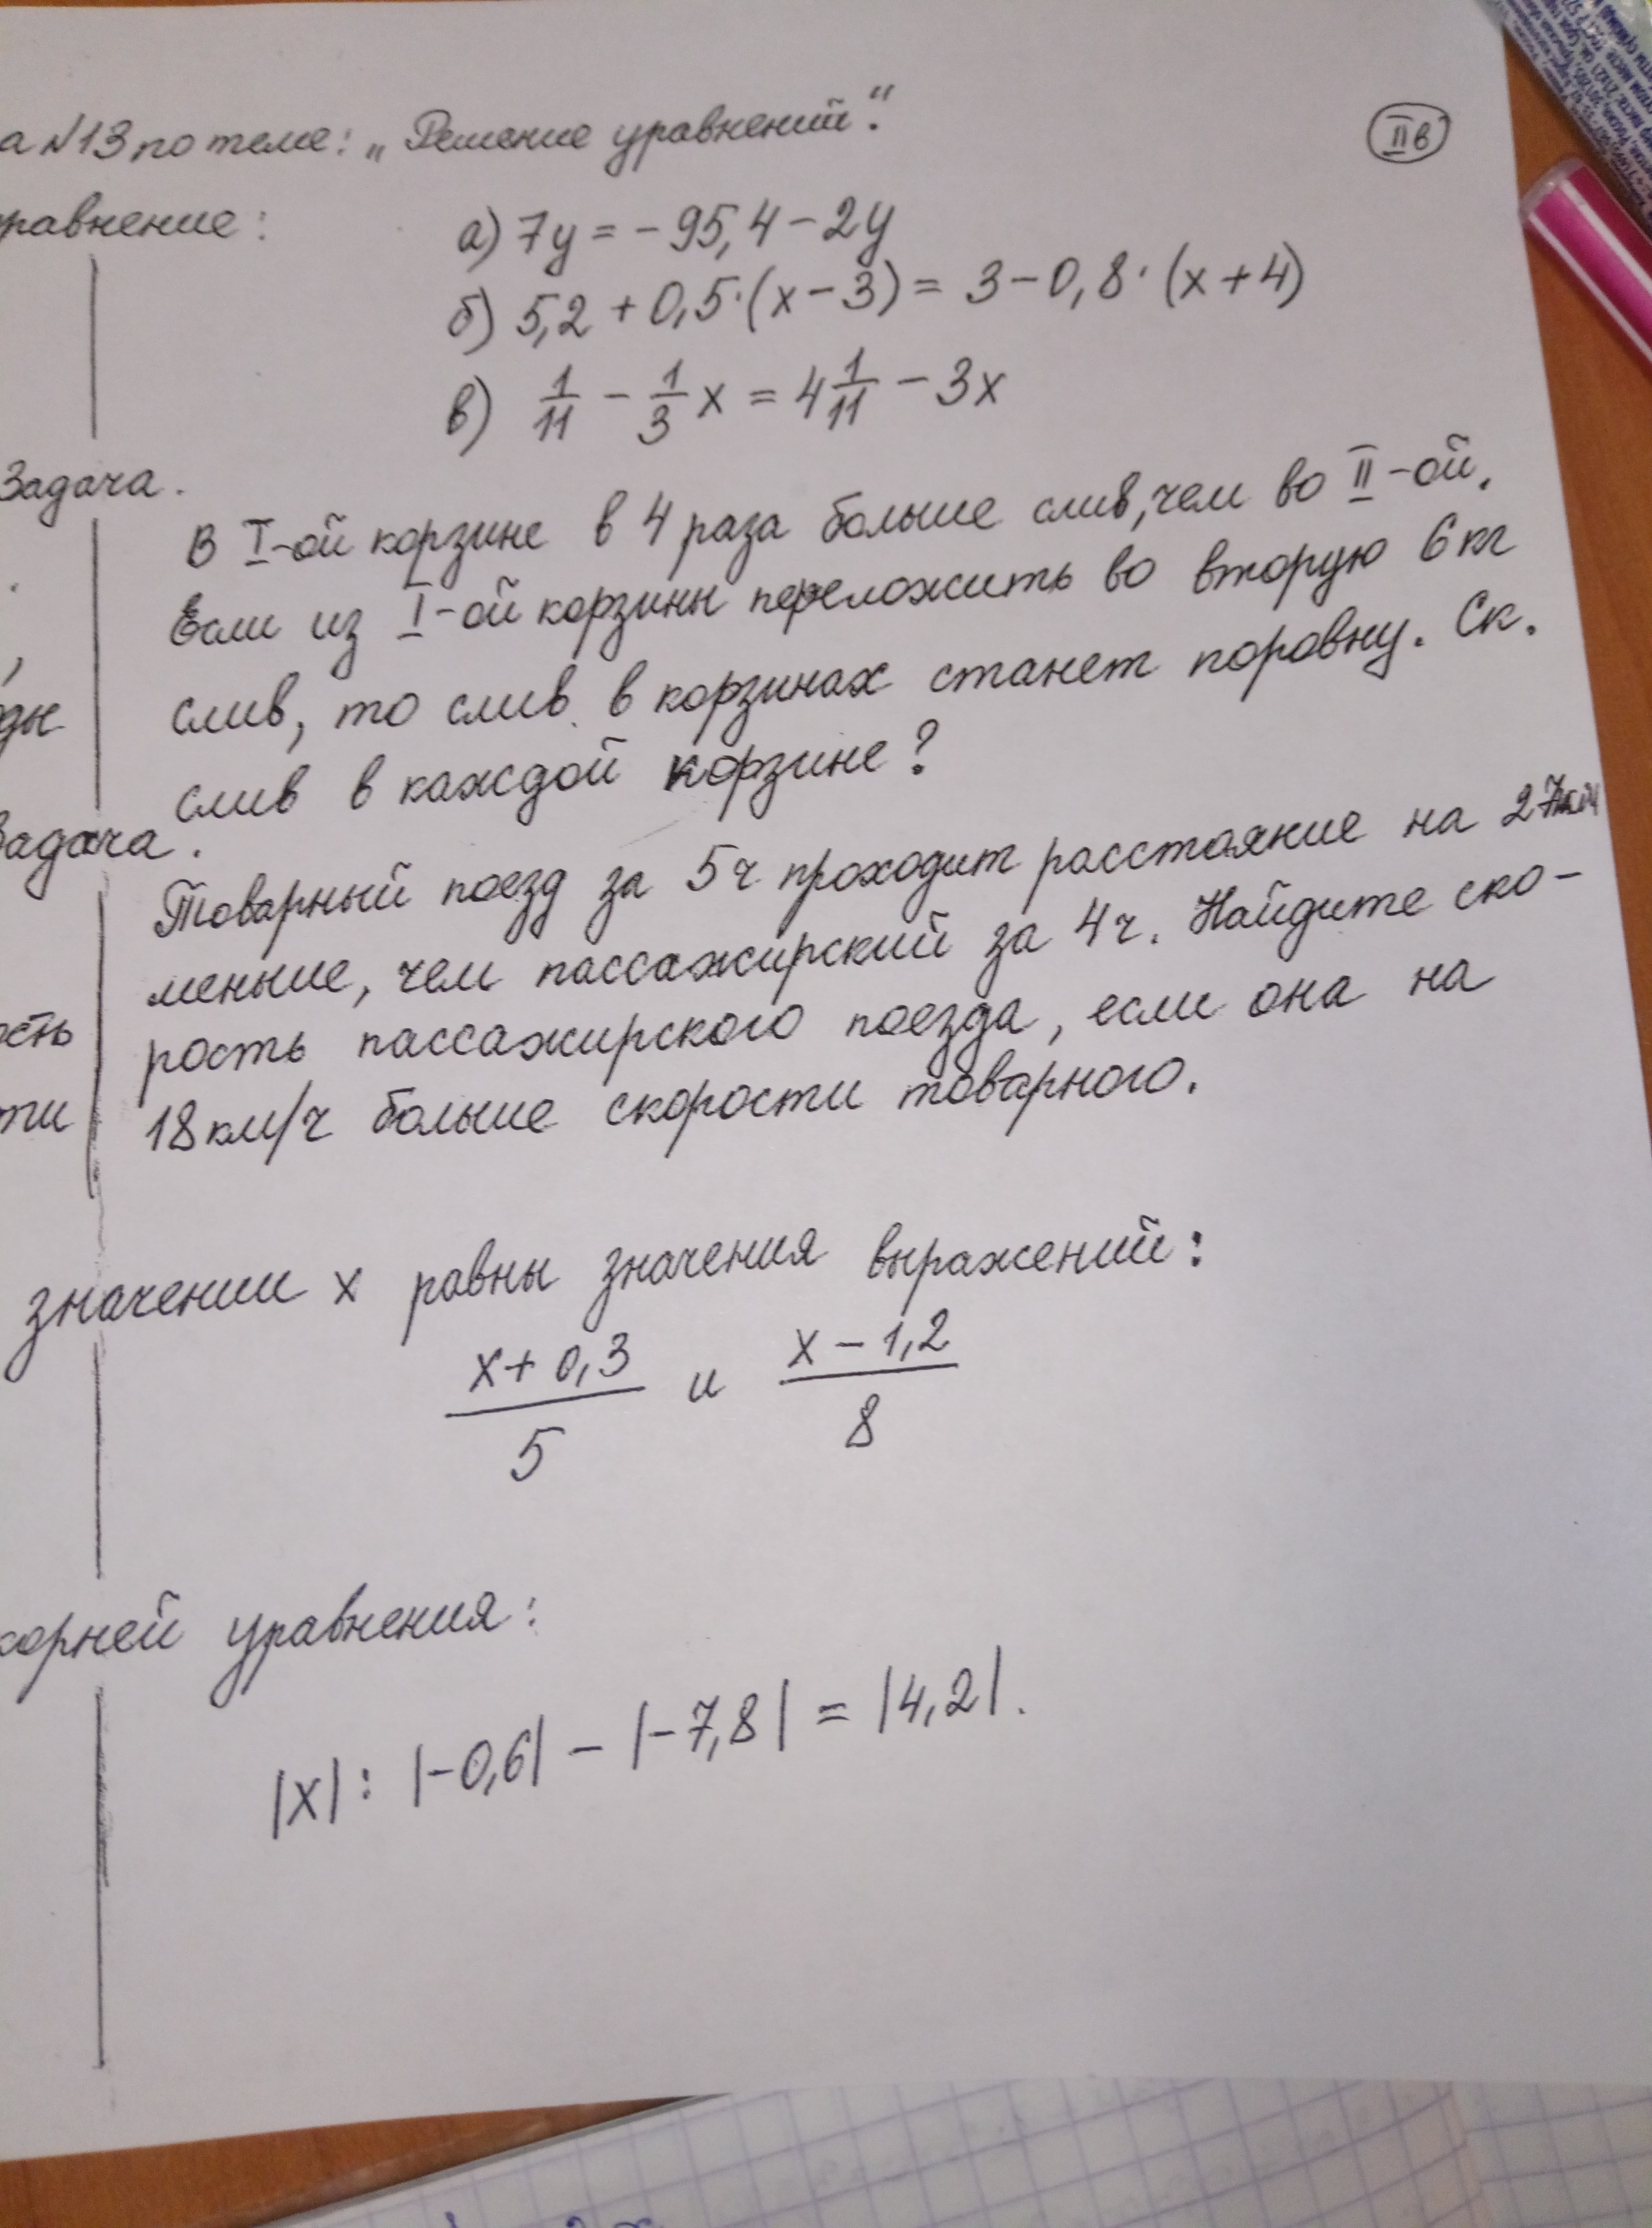 а №13 по теме: „Решение уравнений“.
IIв
равнение:
а) 7y = -95,4 - 2y
б) 5,2 + 0,5·(x - 3) = 3 - 0,8·(x + 4)
в) 1/11 - 1/3 x = 4 1/11 - 3x
Задача.
В I-ой корзине в 4 раза больше слив, чем во II-ой.
Если из I-ой корзины переложить во вторую 6 кг
слив, то слив в корзинах станет поровну. Ск.
ды
слив в каждой корзине?
Задача.
Товарный поезд за 5 ч проходит расстояние на 27 км
меньше, чем пассажирский за 4 ч. Найдите ско-
ость
рость пассажирского поезда, если она на
ти
18 км/ч больше скорости товарного.
значении x равны значения выражений:
x + 0,3 / 5 и x - 1,2 / 8
корней уравнения:
|x| : |-0,6| - |-7,8| = |4,2|.